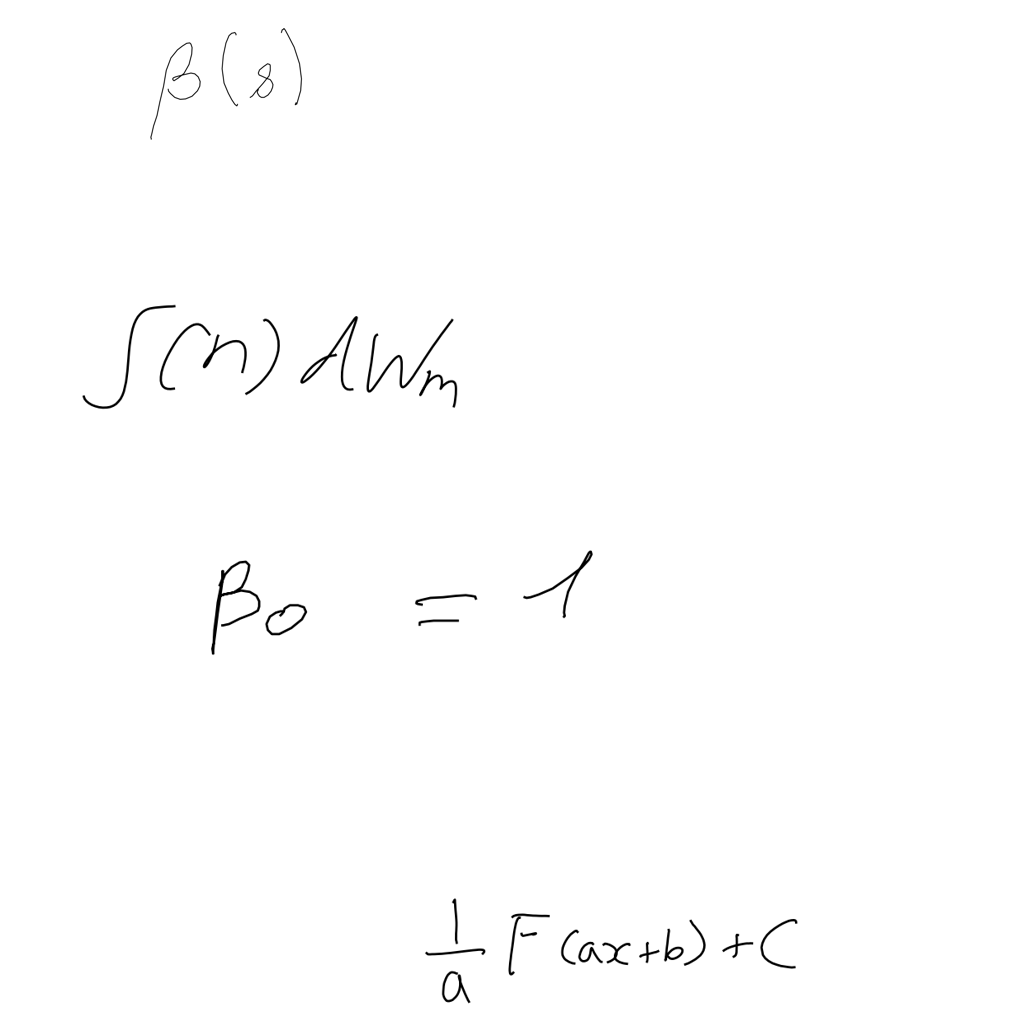 β(s)
∫(n) dWₘ
β₀ = 1
1/a F(ax+b)+C